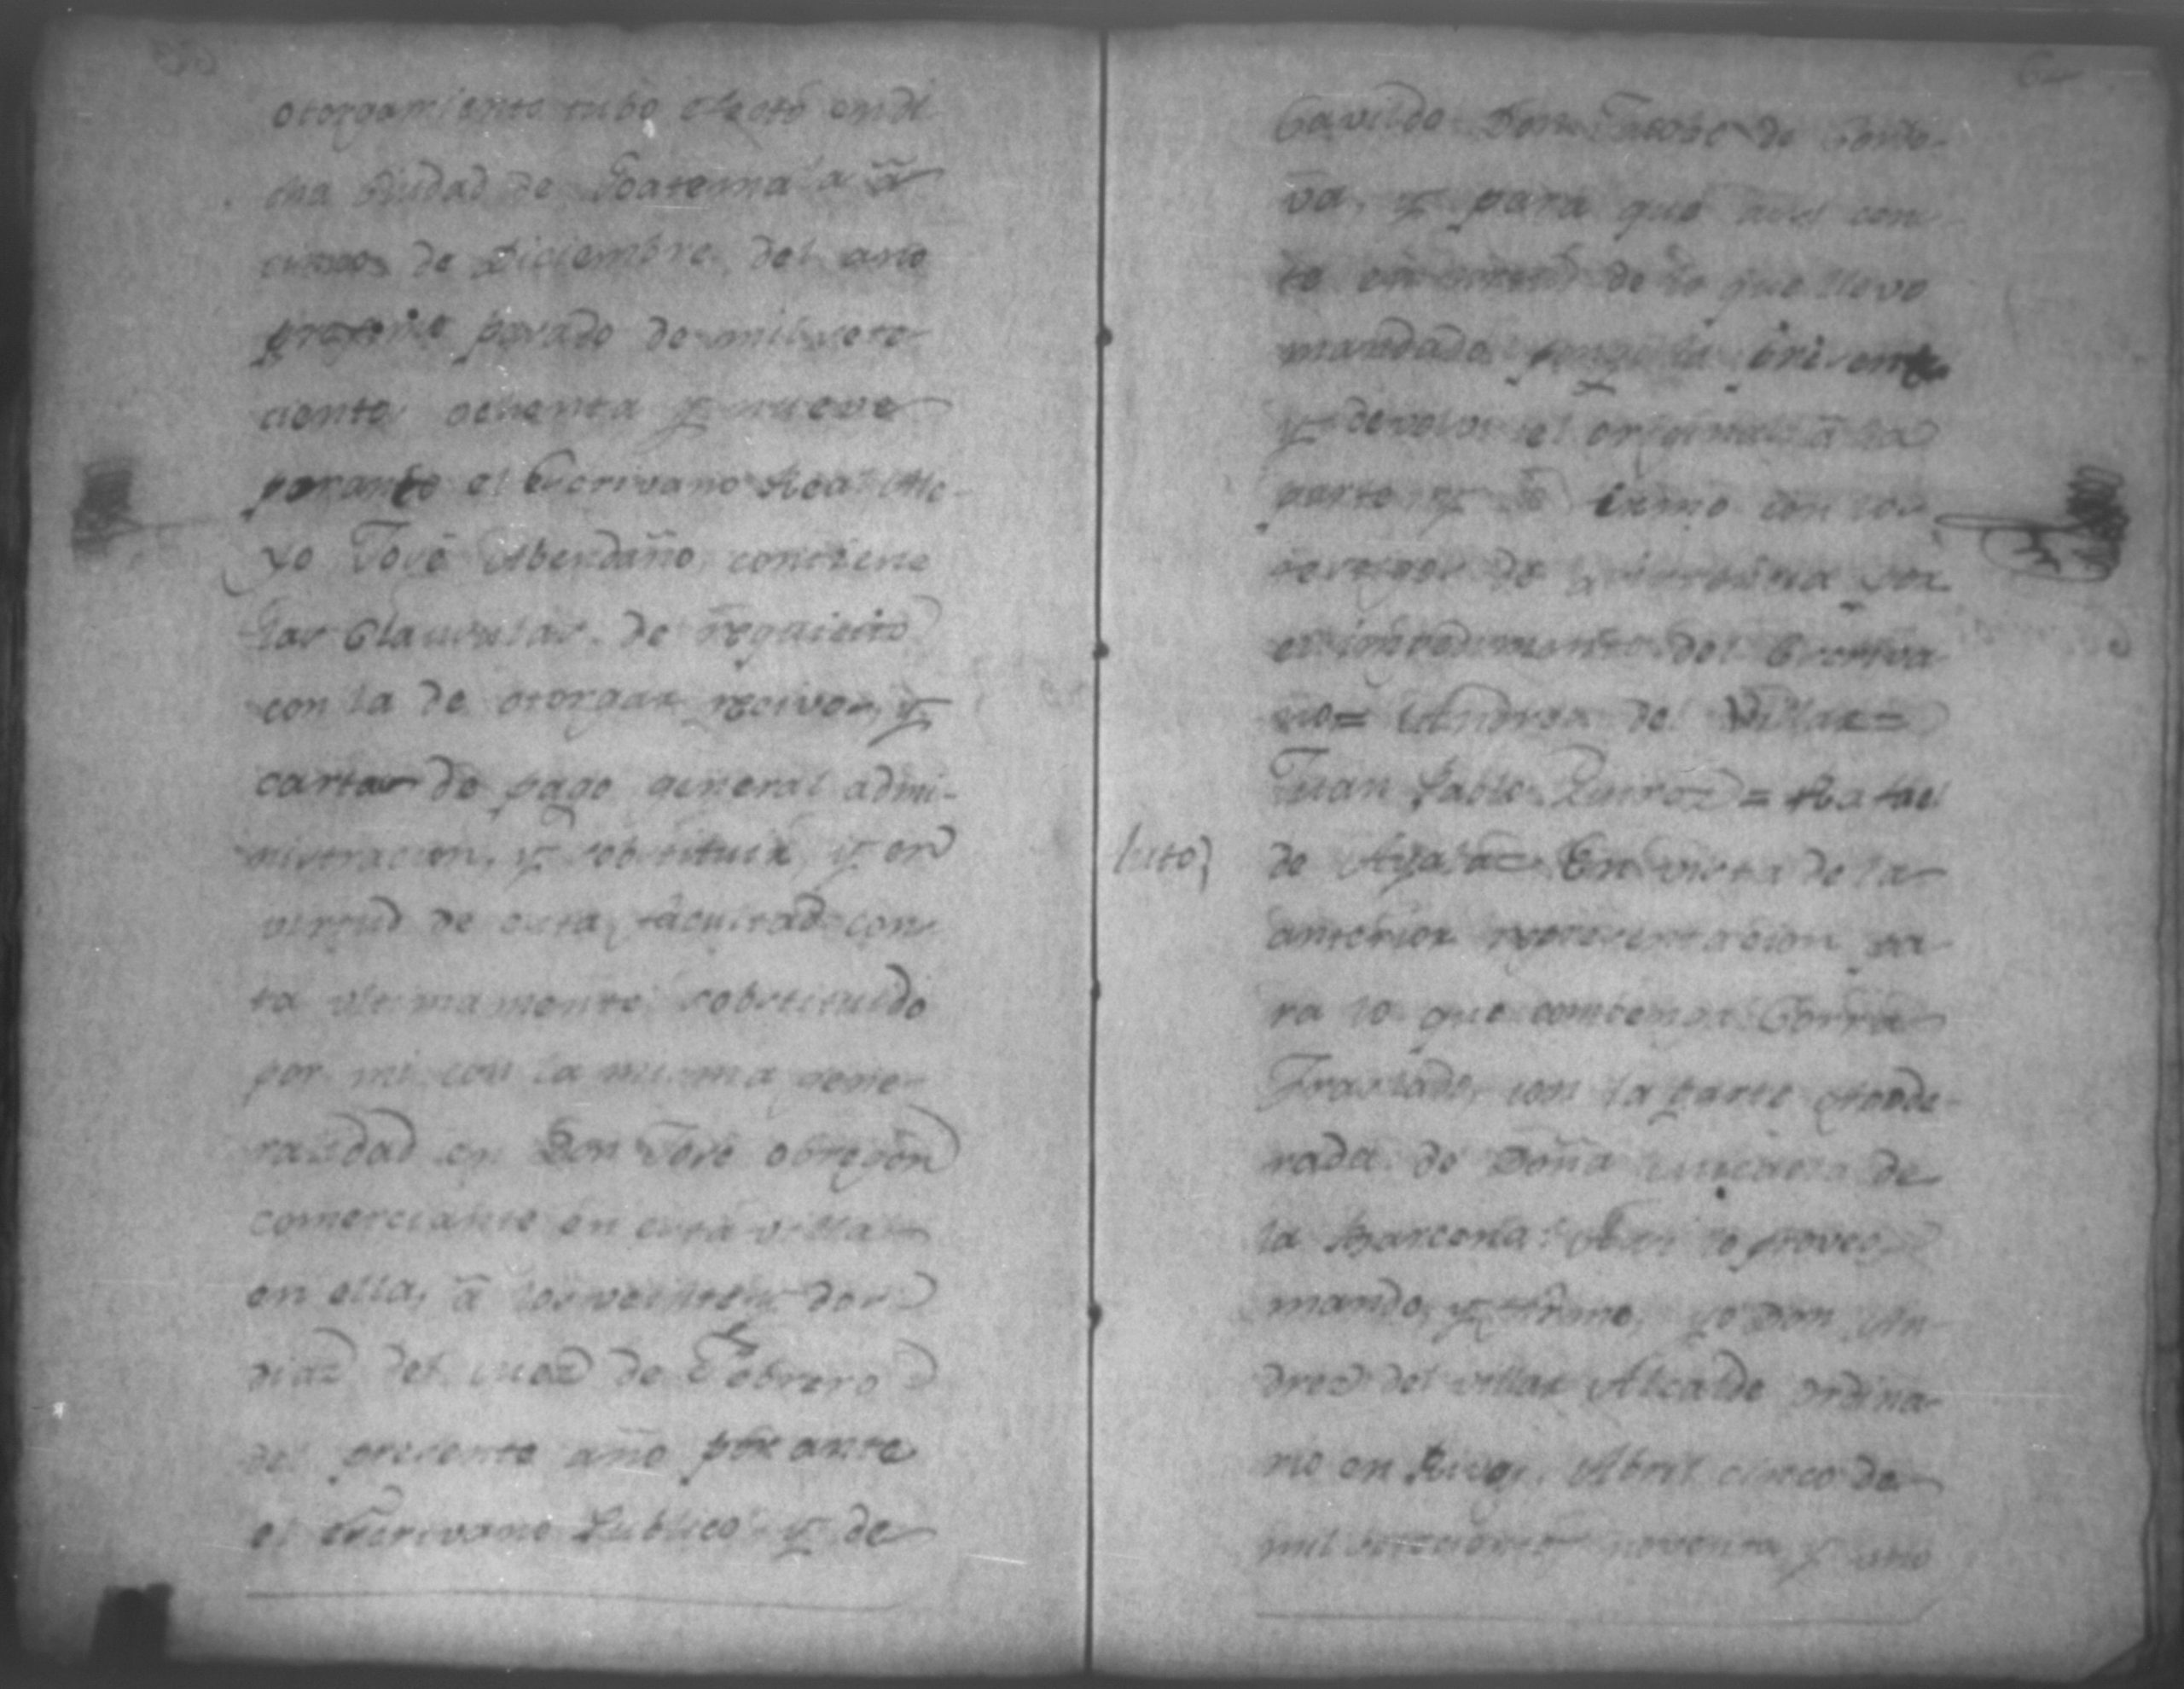 otorgamiento tubo efecto en di
cha Ciudad de Goatemala a
de Diciembre del año
proximo pasado de mil sete-
cientos ochenta y nueve
por ante el Escrivano Real
José Abendaño, contiene
las Clausulas de requicito
con la de otorgar recivos, y
cartas de pago general admi-
nistracion, y sobstituir, y en
virtud de esta facultad cons
ta ultimamente sobstituido
por mi con la misma gene-
ralidad en Don José obregon
comerciante en esta villa
en ella, â los veinte y dos
dias del mes de Febrero
del presente año por ante
el Escrivano Publico y de
62
Cavildo Don de Cordo-
va, y para que assi cons
te en de lo que llevo
mandado pongo la presente
y devolvi el original â la
parte y lo firmo con los
testigos de por
el impedimento del Escriva
no= Andrez del Villar=
Juan Pablo Quiroz = Rafael
Auto}
de Ayala= En vista de la
anterior representacion pa-
ra lo que convenga Corra
Traslado, con la parte apode-
rada de Doña de
la Barcena: Assi lo proveo,
mando, y firmo, yo Don An-
drez del villar Alcalde ordina-
rio en Abril cinco de
mil setecientos noventa, y